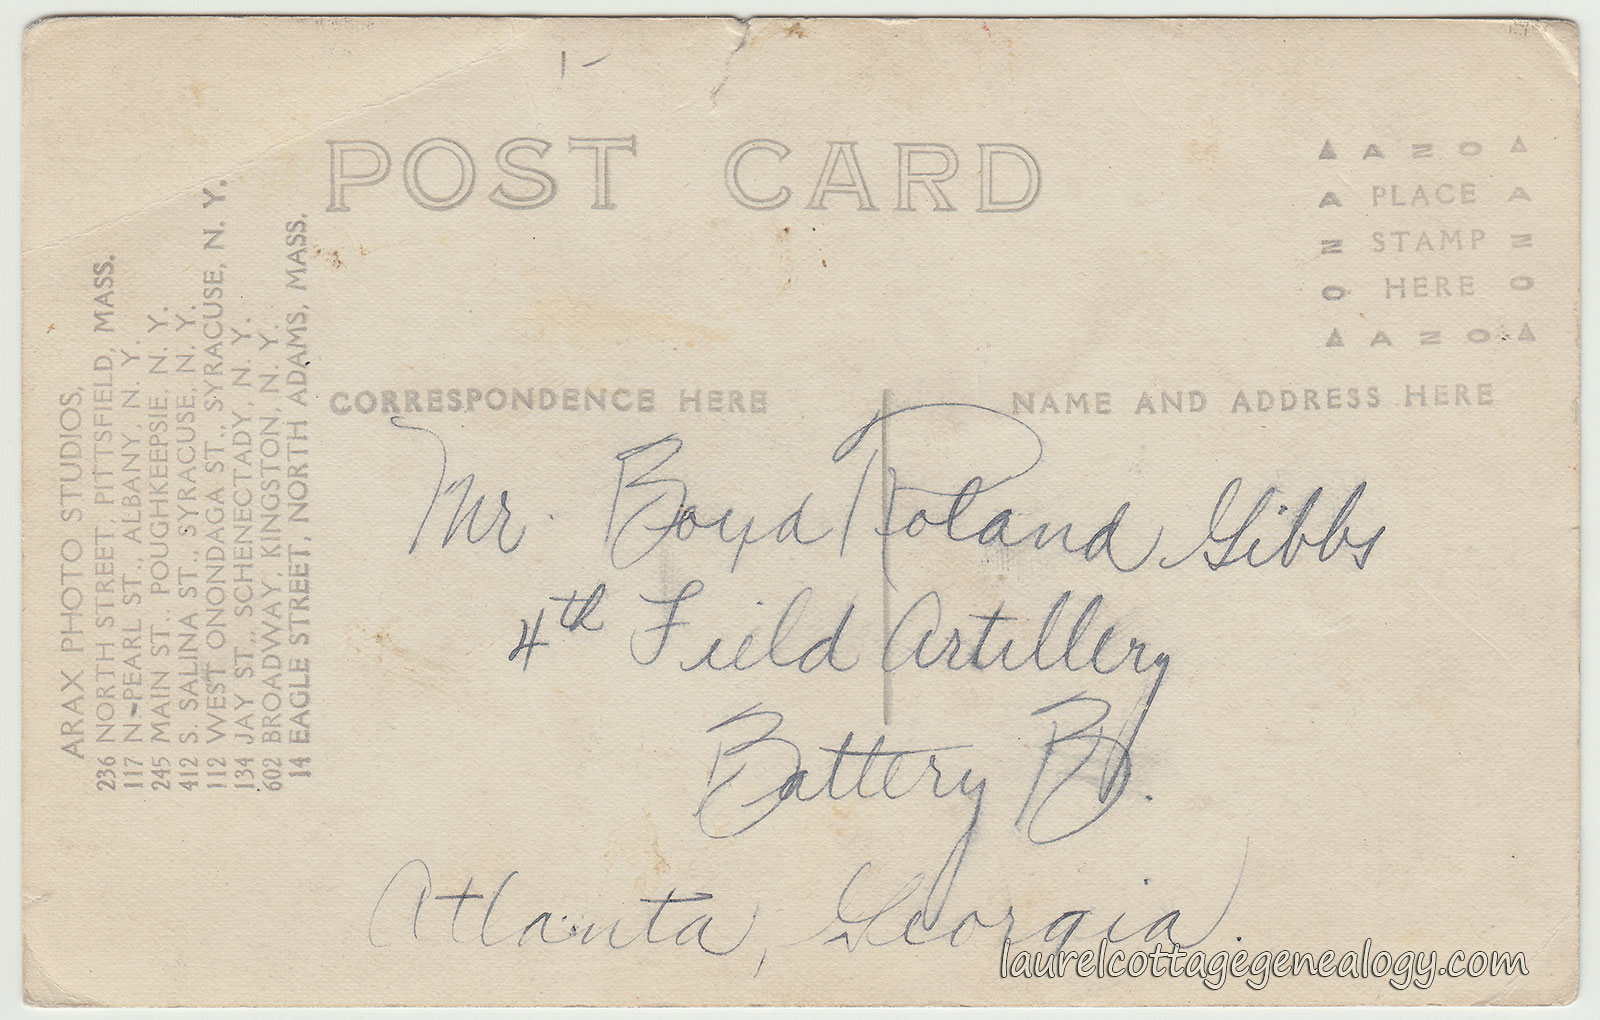 1-
POST CARD
▲ A Z O ▲
A PLACE A
Z STAMP Z
O HERE O
▲ A Z O ▲
ARAX PHOTO STUDIOS,
236 NORTH STREET, PITTSFIELD, MASS.
117 N-PEARL ST., ALBANY, N. Y.
245 MAIN ST., POUGHKEEPSIE, N. Y.
412 S. SALINA ST., SYRACUSE, N. Y.
112 WEST ONONDAGA ST., SYRACUSE, N. Y.
134 JAY ST., SCHENECTADY, N. Y.
602 BROADWAY, KINGSTON, N. Y.
14 EAGLE STREET, NORTH ADAMS, MASS.
CORRESPONDENCE HERE
NAME AND ADDRESS HERE
Mr. Boyd Roland Gibbs
4th Field Artillery
Battery B.
Atlanta, Georgia.
laurelcottagegenealogy.com